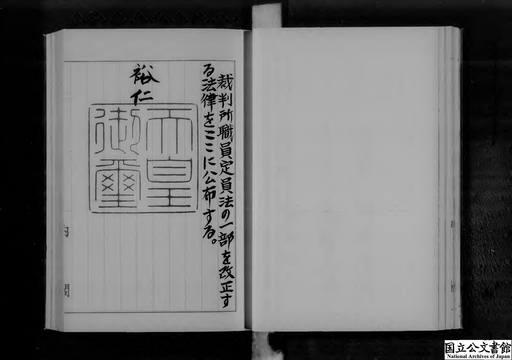 裁判所職員定員法の一部を改正す
る法律をここに公布する。
裕仁
天皇
御璽
内閣
国立公文書館
National Archives of Japan